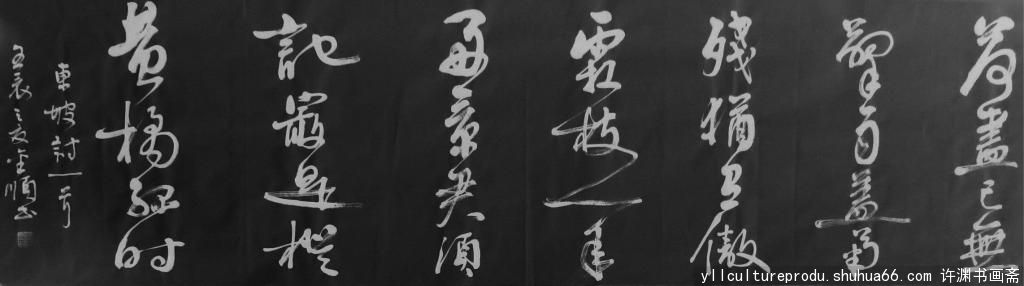 荷盡已無
擎雨蓋菊
殘猶有傲
霜枝一年
好景君須
記最是橙
黄橘綠时
東坡詩一首
壬辰之夏金順书
yllcultureprodu.shuhua66.com 许渊书画斋